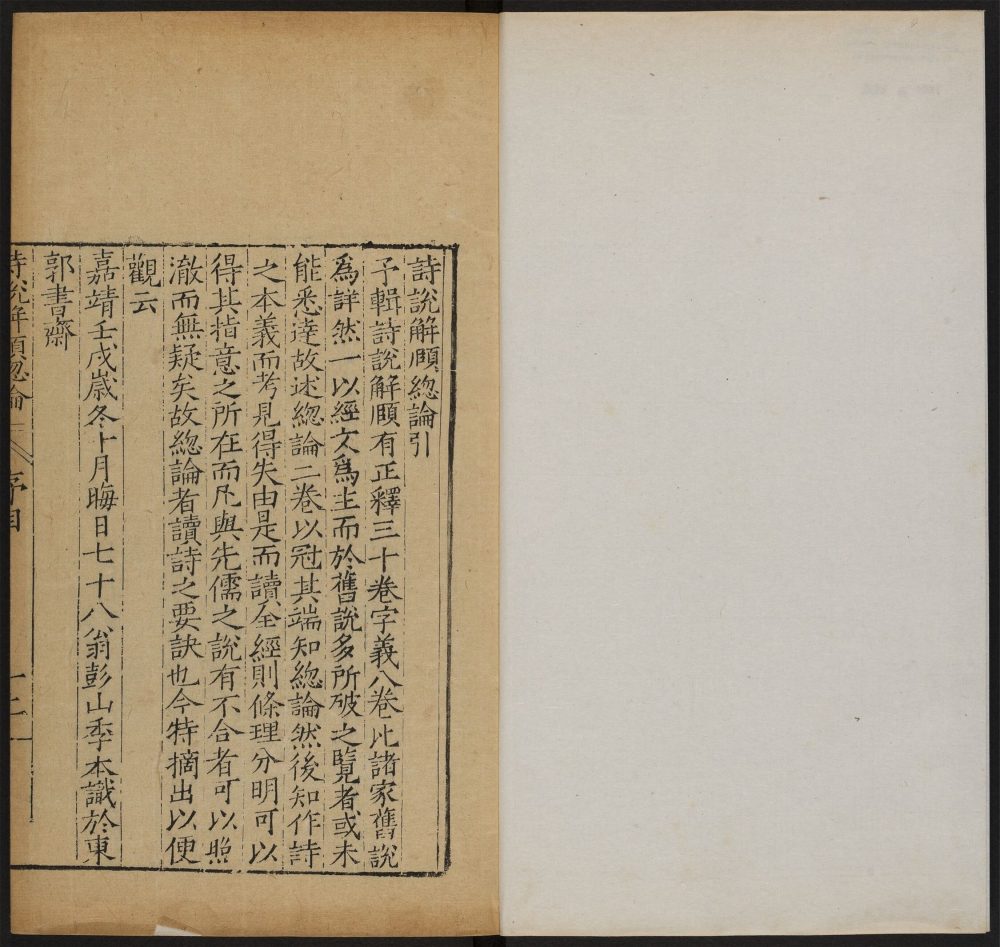 詩說解頤總論引
予輯詩說解頤有正釋三十卷字義八卷比諸家舊說
爲詳然一以經文爲主而於舊說多所破之覽者或未
能悉達故述總論二卷以冠其端知總論然後知作詩
之本義而考見得失由是而讀全經則條理分明可以
得其指意之所在而凡與先儒之說有不合者可以照
澈而無疑矣故總論者讀詩之要訣也今特摘出以便
觀云
嘉靖壬戌歲冬十月晦日七十八翁彭山季本識於東
郭書齋
詩說解頤總論 序目